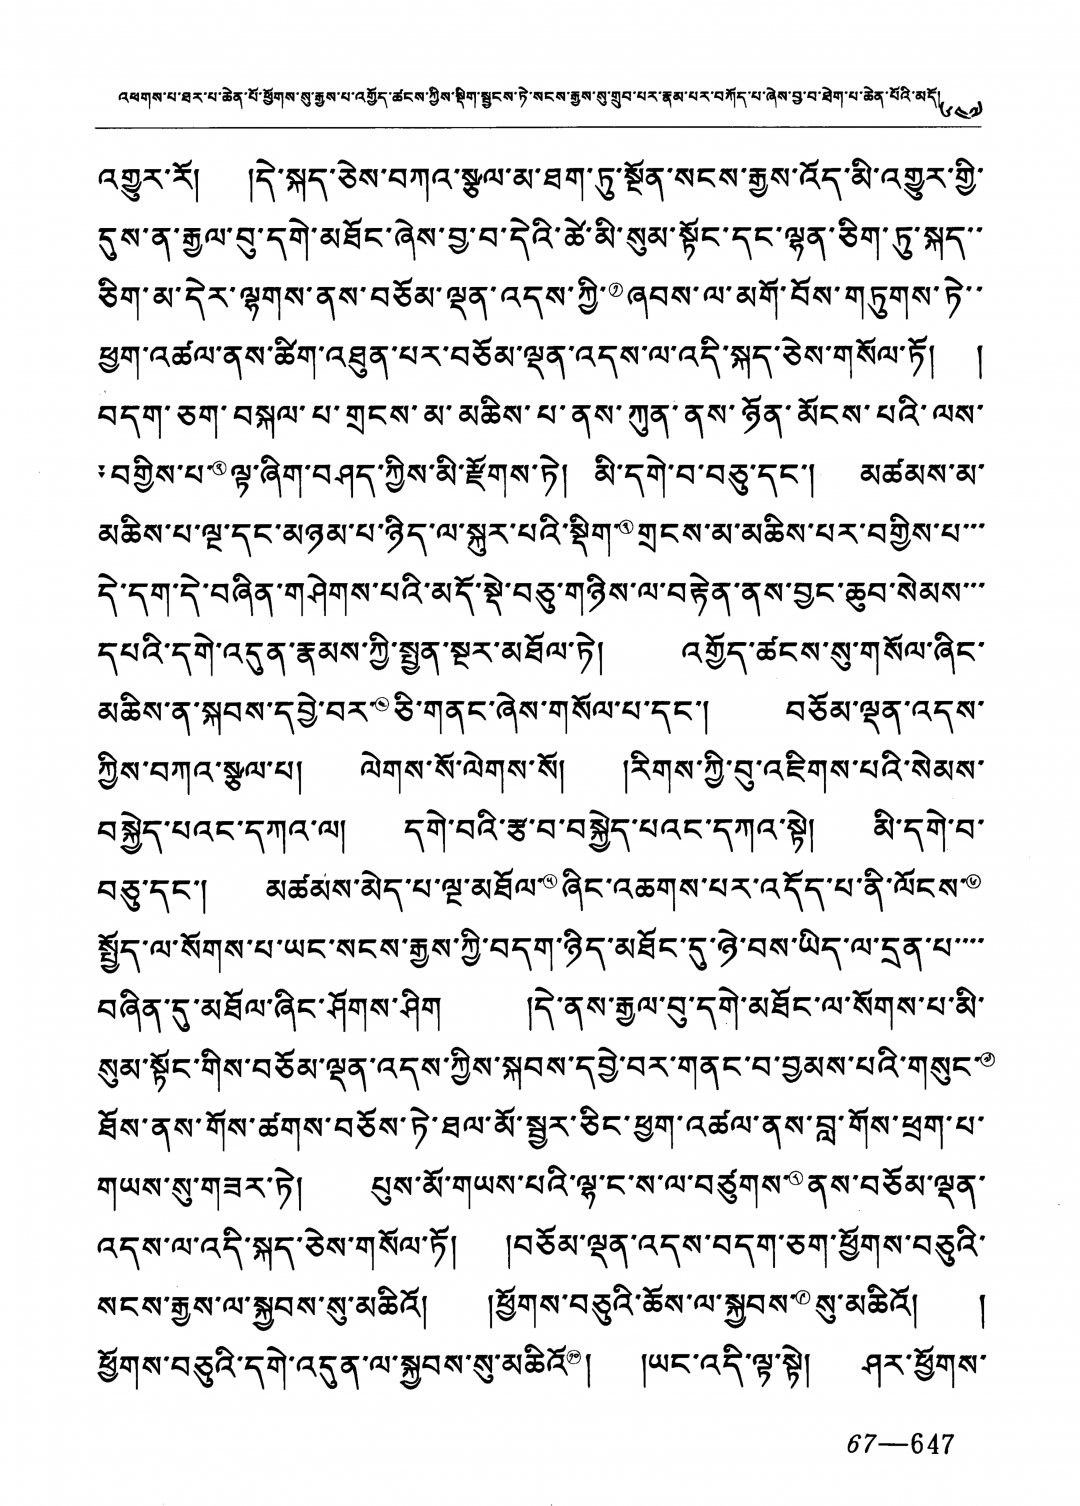 འཕགས་པ་ཐར་པ་ཆེན་པོ་ཕྱོགས་སུ་རྒྱས་པ་འགྱོད་ཚངས་ཀྱིས་སྡིག་སྦྱངས་ཏེ་སངས་རྒྱས་སུ་གྲུབ་པར་རྣམ་པར་བཀོད་པ་ཞེས་བྱ་བ་ཐེག་པ་ཆེན་པོའི་མདོ། ༦༤༧
འགྱུར་རོ། །དེ་སྐད་ཅེས་བཀའ་སྩལ་མ་ཐག་ཏུ་སྔོན་སངས་རྒྱས་འོད་མི་འགྱུར་གྱི་
དུས་ན་རྒྱལ་བུ་དགེ་མཐོང་ཞེས་བྱ་བ་དེའི་ཚེ་མི་སུམ་སྟོང་དང་ལྷན་ཅིག་ཏུ་སྐད་་
ཅིག་མ་དེར་ལྷགས་ནས་བཅོམ་ལྡན་འདས་ཀྱི་༡ཞབས་ལ་མགོ་བོས་གཏུགས་ཏེ་་
ཕྱག་འཚལ་ནས་ཚིག་འཐུན་པར་བཅོམ་ལྡན་འདས་ལ་འདི་སྐད་ཅེས་གསོལ་ཏོ། །
བདག་ཅག་བསྐལ་པ་གྲངས་མ་མཆིས་པ་ནས་ཀུན་ནས་ཉོན་མོངས་པའི་ལས་
་བགྱིས་པ་༢ལྟ་ཞིག་བཤད་ཀྱིས་མི་རྫོགས་ཏེ། མི་དགེ་བ་བཅུ་དང་། མཚམས་མ་
མཆིས་པ་ལྔ་དང་མཉམ་པ་ཉིད་ལ་སྐུར་པའི་སྡིག་༣གྲངས་མ་མཆིས་པར་བགྱིས་པ་་་
དེ་དག་དེ་བཞིན་གཤེགས་པའི་མདོ་སྡེ་བཅུ་གཉིས་ལ་བརྟེན་ནས་བྱང་ཆུབ་སེམས་་་
དཔའི་དགེ་འདུན་རྣམས་ཀྱི་སྤྱན་སྔར་མཐོལ་ཏེ། འགྱོད་ཚངས་སུ་གསོལ་ཞིང་
མཆིས་ན་སྐབས་དབྱེ་བར་༤ཅི་གནང་ཞེས་གསོལ་པ་དང་། བཅོམ་ལྡན་འདས་
ཀྱིས་བཀའ་སྩལ་པ། ལེགས་སོ་ལེགས་སོ། །རིགས་ཀྱི་བུ་འཇིགས་པའི་སེམས་
བསྐྱེད་པའང་དཀའ་ལ། དགེ་བའི་རྩ་བ་བསྐྱེད་པའང་དཀའ་སྟེ། མི་དགེ་བ་
བཅུ་དང་། མཚམས་མེད་པ་ལྔ་མཐོལ་༥ཞིང་འཆགས་པར་འདོད་པ་ནི་ལོངས་༦
སྤྱོད་ལ་སོགས་པ་ཡང་སངས་རྒྱས་ཀྱི་བདག་ཉིད་མཐོང་དུ་ཉེ་བས་ཡིད་ལ་དྲན་པ་་་་
བཞིན་དུ་མཐོལ་ཞིང་ཤོགས་ཤིག །དེ་ནས་རྒྱལ་བུ་དགེ་མཐོང་ལ་སོགས་པ་མི་
སུམ་སྟོང་གིས་བཅོམ་ལྡན་འདས་ཀྱིས་སྐབས་དབྱེ་བར་གནང་བ་བྱམས་པའི་གསུང་༧
ཐོས་ནས་གོས་ཚགས་བཅོས་ཏེ་ཐལ་མོ་སྦྱར་ཅིང་ཕྱག་འཚལ་ནས་བླ་གོས་ཕྲག་པ་
གཡས་སུ་གཟར་ཏེ། པུས་མོ་གཡས་པའི་ལྷ་ང་ས་ལ་བཙུགས་༨ནས་བཅོམ་ལྡན་
འདས་ལ་འདི་སྐད་ཅེས་གསོལ་ཏོ། །བཅོམ་ལྡན་འདས་བདག་ཅག་ཕྱོགས་བཅུའི་
སངས་རྒྱས་ལ་སྐྱབས་སུ་མཆིའོ། །ཕྱོགས་བཅུའི་ཆོས་ལ་སྐྱབས་༩སུ་མཆིའོ། །
ཕྱོགས་བཅུའི་དགེ་འདུན་ལ་སྐྱབས་སུ་མཆིའོ༡༠། །ཡང་འདི་ལྟ་སྟེ། ཤར་ཕྱོགས་
67—647